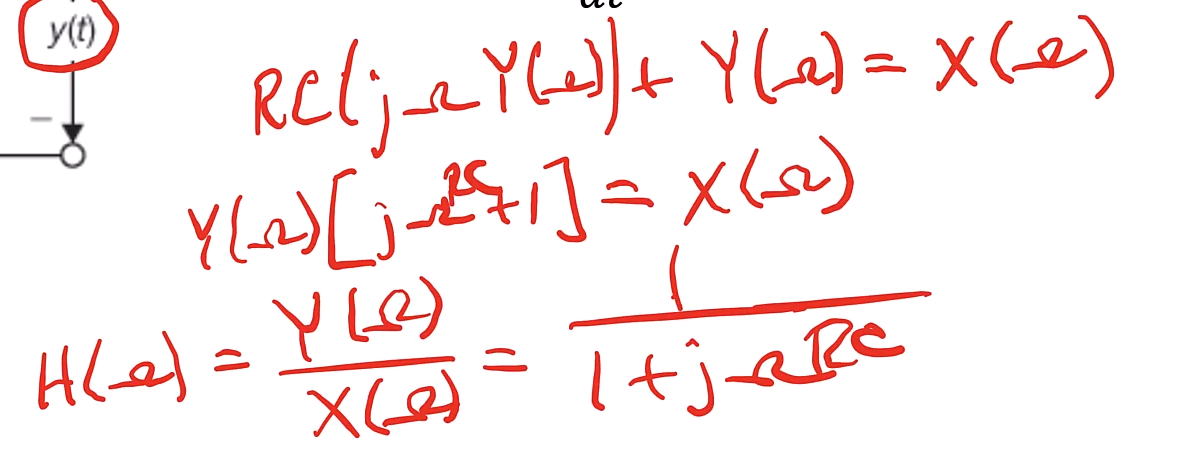 y(t)
−
RC(jΩY(Ω)) + Y(Ω) = X(Ω)
Y(Ω)[jΩRC+1] = X(Ω)
H(Ω) = Y(Ω)/X(Ω) = 1/(1+jΩRC)